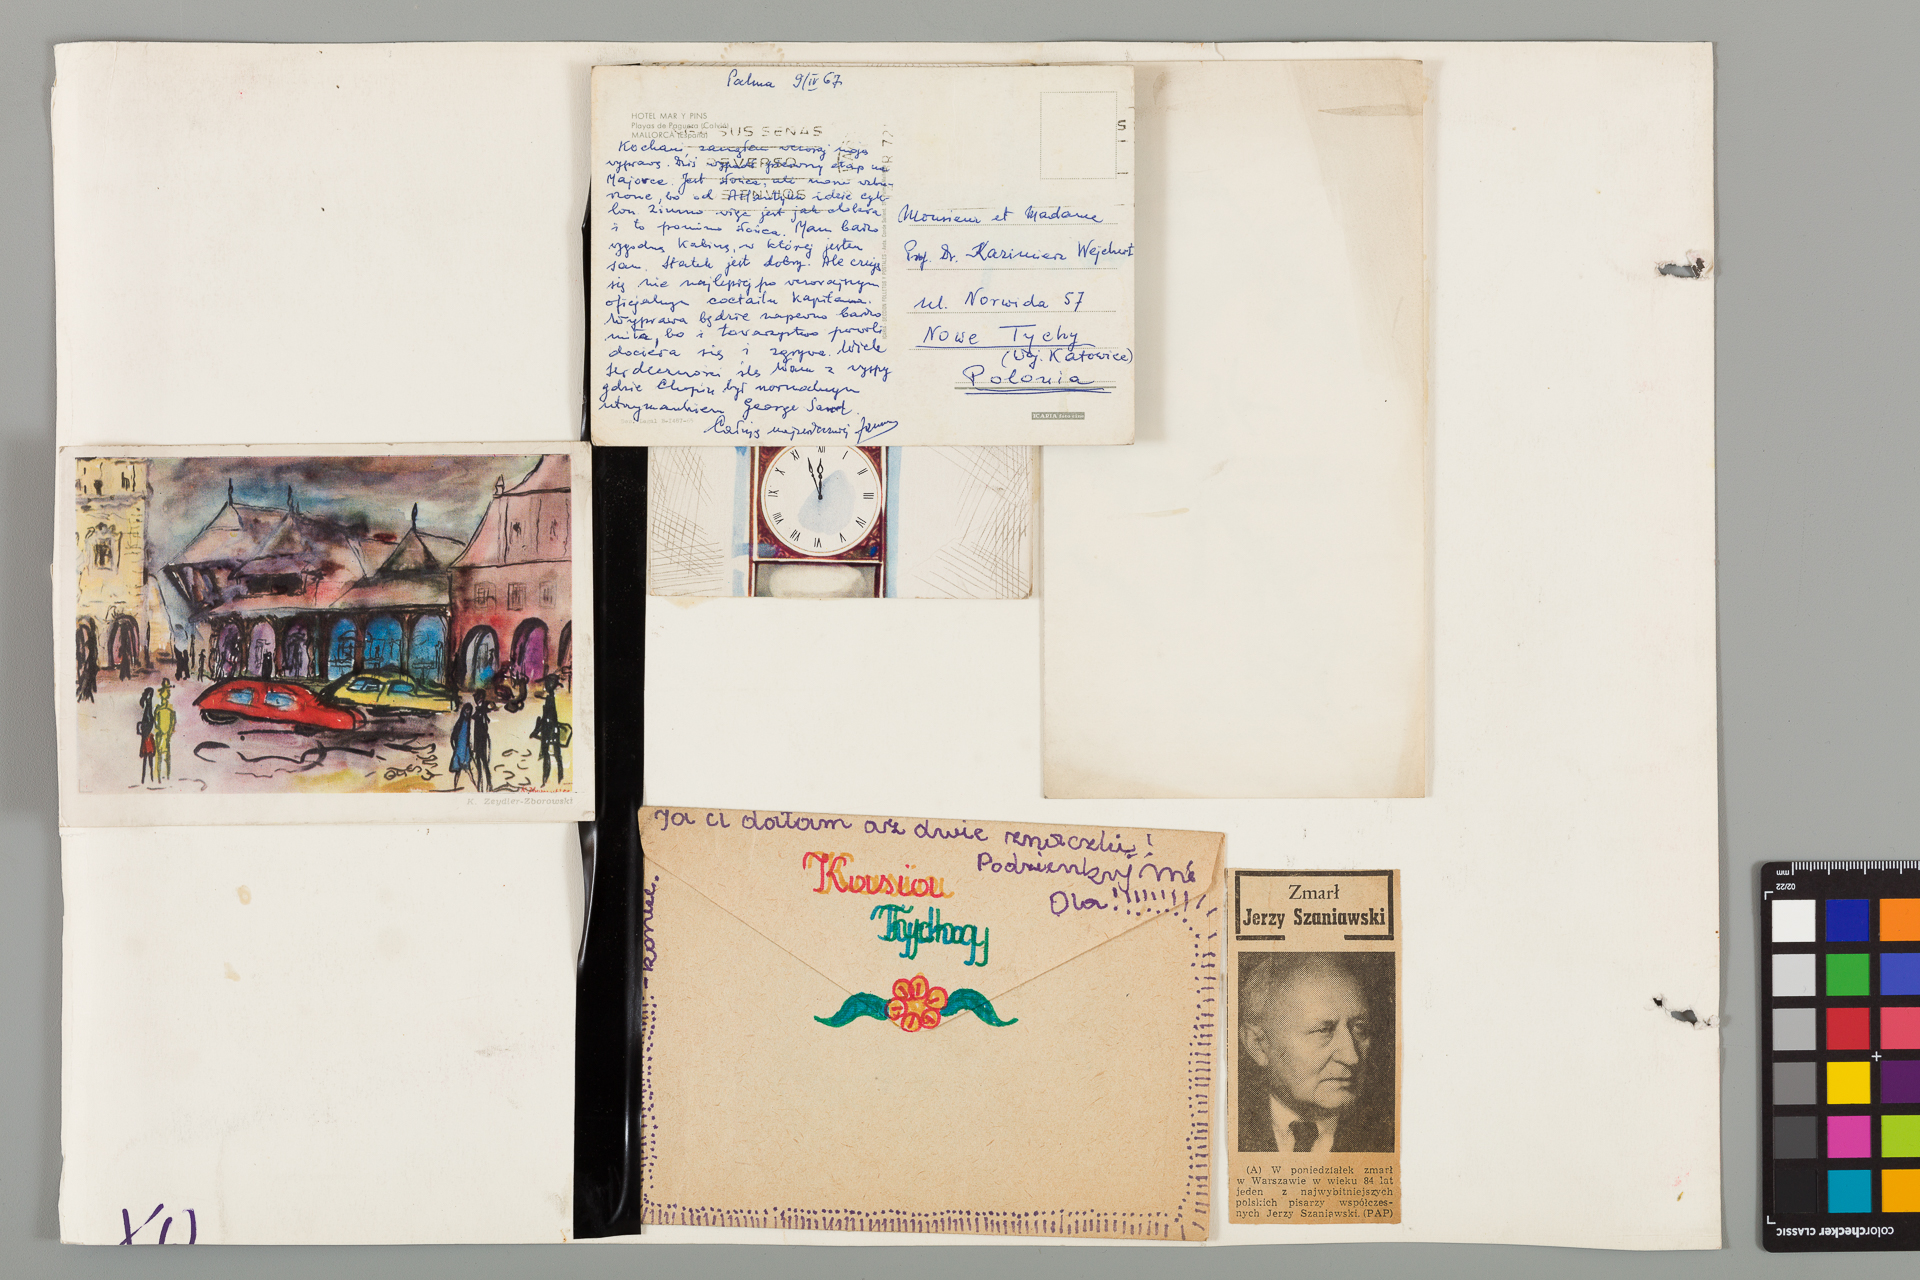 Palma 9/IV 67
HOTEL MAR Y PINS
Playas de Paguera (Calvià)
MALLORCA (España)
SUS SEÑAS
REVERSO
ENVIOS
Kochani zacząłem wczoraj moją
wyprawę. Dziś pierwszy etap na
Majorce. Jest słońce, ale morze wzbu-
rzone, bo od Atlantyku idzie cyk-
lon. Zimno więc jest jak cholera
i to pomimo słońca. Mam bardzo
wygodną kabinę, w której jestem
sam. Statek jest dobry. Ale czuję
się nie najlepiej po wczorajszym
oficjalnym coctailu Kapitana.
Wyprawa będzie napewno bardzo
miła, bo i towarzystwo powoli
dociera się i zgrywa. Wiele
serdeczności ślę Wam z wyspy
gdzie Chopin był normalnym
utrzymankiem George Sand.
Całuję najserdeczniej
Monsieur et Madame
Prof. Dr. Kazimierz Wejchert
ul. Norwida 57
Nowe Tychy
(Woj. Katowice)
Polonia
ICARIA
K. Zeydler-Zborowski
XII I II III IV V VI VII VIII IX X XI
Ja ci dałam aż dwie znaczki!
Podzienkuj mi
Ola!!!!!!!!!
Kasia
Tychy
Zmarł
Jerzy Szaniawski
(A) W poniedziałek zmarł
w Warszawie w wieku 84 lat
jeden z najwybitniejszych
polskich pisarzy współczes-
nych Jerzy Szaniawski. (PAP)
mm
02/22
colorchecker CLASSIC